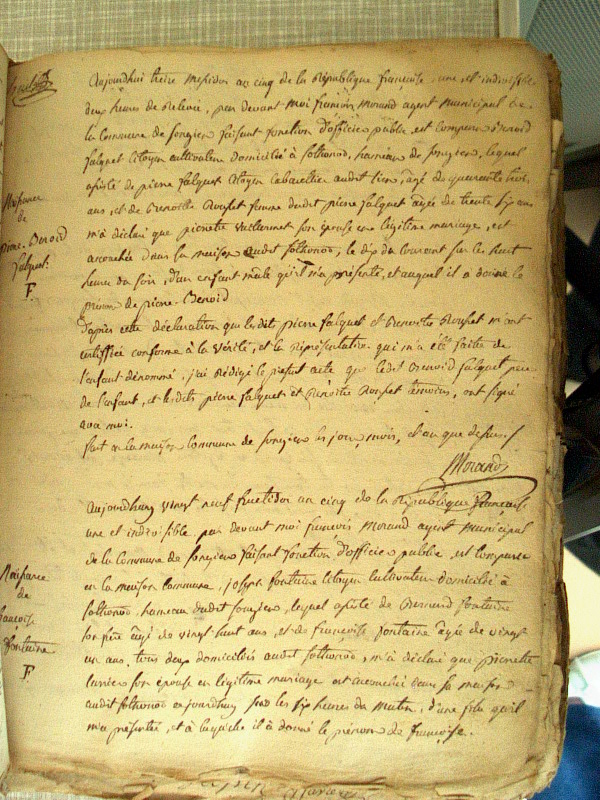 Naissance
de
pierre Benoid
falquet
F
Aujourdhui treize Messidor au cinq de la République françoise, une et indivisible
deux heures de Relevée, par devant moi françois Morand agent municipal de
la Commune de Songieu faisant fonction d'officier public, est comparu Benoid
falquet Citoyen cultivateur domicilié à Sothonod, hameau de Songieu, lequel
assisté de pierre falquet Citoyen Cabarettier audit lieu, agé de quarente trois
ans, et de Benoitte Rousset femme dudit pierre falquet agée de trente six ans
m'a déclaré que pierrette Vuillermet son épouse en légitime mariage, est
accouchée dans la maison audit Sothonod, le dix du Courant sur les huit
heures du soir, d'un enfant mâle qu'il m'a présenté, et auquel il a donné le
prénom de pierre-Benoid
d'après cette déclaration que lesdits pierre falquet et Benoitte Rousset m'ont
certiffiée conforme à la vérité, et la Représentation qui m'a été faite de
l'enfant dénommé, j'ai Rédigé le présent acte que ledit Benoid falquet père
de l'enfant, et lesdits pierre falquet et Benoitte Rousset temoins, ont signé
avec moi.
fait en la maison Commune de Songieu les jour, mois, et an que dessus
Morand
Naissance
de
françoise
fontaine
F
Aujourdhuy vingt neuf fructidor an cinq de la République françoise
une et indivisible, par devant moi françois Morand agent Municipal
de la Commune de Songieu faisant fonction d'officier public, est Comparu
en la maison Commune, joseph fontaine Citoyen Cultivateur domicilié à
Sothonod, hameau dudit Songieu, lequel assisté de Bernard fontaine
son père agé de vingt huit ans, et de françoise fontaine agée de vingt
un ans, tous deux domiciliés audit Sothonod, m'a déclaré que pierrette
son épouse en légitime mariage est accouchée dans sa maison
audit Sothonod aujourdhuy sur les six heures du Matin, d'une fille qu'il
m'a présentée, et à laquelle il à donné le prénom de françoise.